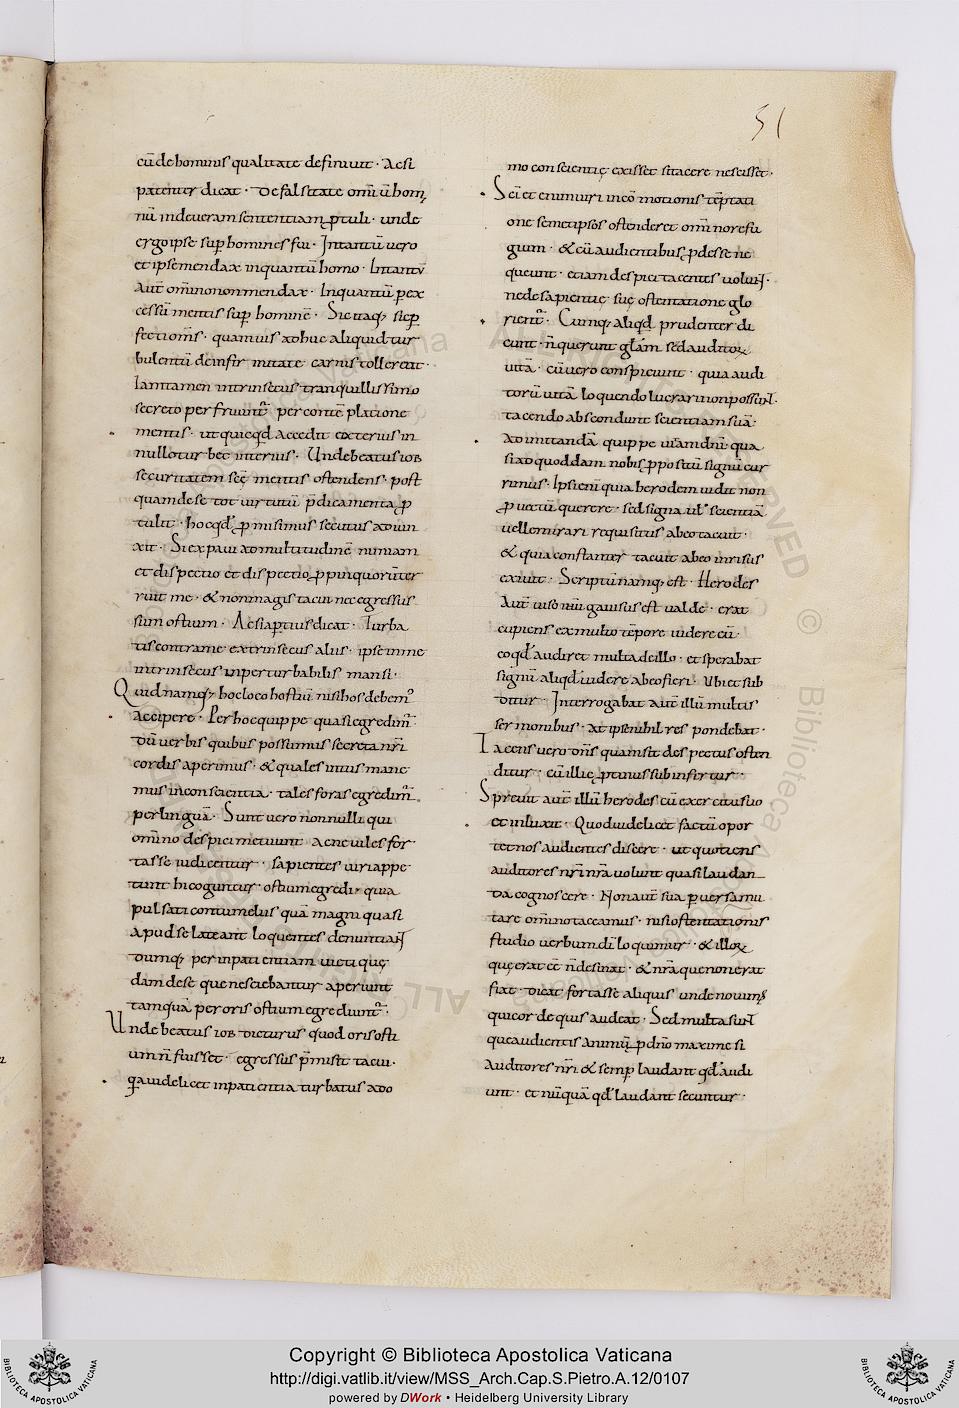 51
cū de hominis qualitate definiuit · Ac si
patenter dicat · De falsitate om̅iū homi
nū inde ueram sententiam ꝓtuli · unde
ergo ipse suꝑ homines fui · Jntantū uero
et ipse mendax inquantū homo · Intantū
aut̅ om̅ino non mendax · Inquantū ꝑ ex
cessū mentis suꝑ hominē · Sic itaq; sic ꝑ
fecti om̅s · quamuis adhuc aliquid tur
bulentū de infirmitate carnis tollerent ·
Iam tamen intrinsecus tranquillissimo
secreto perfruunt̅ per contēplatione
mentis · ut quicqd̅ accedit exterius in
nullo turbet interius · Unde beatus iob
securitatem scę mentis ostendens · post
quam de se tot uirtutū p̅dicamenta ꝓ
tulit · hoc qd̅ ꝓmisimus secutus adiun
xit · Si expaui ad multitudinē nimiam
et dispectio et dispectio ꝓpinquorū ter
ruit me · & non magis tacui nec egressus
sum ostium · Ac si aꝑtius dicat · Turba
tis contra me extrinsecus aliis · ipse in me
intrinsecus inperturbabilis mansi ·
Quid namq; hoc loco hostiū nisi hos debem᾿
accipere · Per hoc quippe quasi egredim̅
Dū uerbis quibus possumus secreta nr̅i
cordis aperimus · & quales intus mane
mus in conscientia · tales foras egredim̅
per linguā · Sunt uero nonnulli qui
om̅ino despici metuunt · ac ne uiles for
tasse iudicentur · sapientes uiri appe
tunt hi coguntur ostium egredi, quia
pulsati contumeliis quā magni quasi
apud se lateant loquentes denuntiant
Dumq; per inpatientiam uicti quę
dam de se que nesciebantur aperiunt
tamquā per oris ostium egrediunt̅ ·
Unde beatus iob dicturus quod oris osti
um n̅ fuisset · egressus p̅misit tacui ·
qa̅ uidelicet inpatientia turbatus ad o
mo conscientię exisset si tacere nescisset ·
Sci et enim uiri in eo motionis tēptati
one semetipsos ostenderet om̅ino refu
gium · & cū audientibus ꝓdesse ne
queunt · etiam despici tacentes uolunt ·
ne de sapientię suę ostentatione glo
rient̅ · Cumq; aliqd̅ prudenter di
cunt · n̅ querunt gl̅am sed auditorꝝ
uitā · cū uero conspiciunt · quia audi
torū uitā loquendo lucrari non possunt ·
tacendo abscondunt scientiam suā ·
ad imitandā quippe uitam dn̅i qua
si ad quoddam nobis ꝓpositū signū cur
rimus · Ipse nū quia herodem uidit non
ꝓuectū querere · sed signa uel scientiā
uelle mirari requisitus ab eo tacuit ·
& quia constanter tacuit ab eo inrisus
exiuit · Scriptū namq; est · Herodes
aut̅ uiso ih̅u gauisus est ualde · erat
cupiens ex multo tēpore uidere eū ·
eo qd̅ audiret multa de illo · et sperabat
signū aliqd̅ uidere ab eo fieri · Ubi et sub
ditur · Interrogabat aut̅ illū multis
sermonibus · at ipse nihil respondebat ·
Tacens uero dn̅s quam sit despectus osten
ditur · cū illic ꝓtinus subinfertur ·
Spreuit aut̅ illū herodes cū exercitu suo
et inluxit · Quod uidelicet factū opor
tet nos audientes discere · ut quotiens
auditores nr̅i nr̅a uolunt quasi laudan
da cognoscere · Non aut̅ sua ꝑuersa mu
tare om̅ino taceamus · nisi ostentationis
studio uerbum di̅ loquimur · & illorꝝ
quę erat ee̅ n̅ desinat · & nr̅a que non erat
fiat · Dicat fortasse aliquis unde nouim᾿
qui cor de quis audeat · Sed multa sunt
que audientis animū ꝓdn̅t maxime si
auditores nr̅i & semꝑ laudant qd̅ audi
unt · et nūquā qd̅ laudant secuntur ·
Copyright © Biblioteca Apostolica Vaticana
http://digi.vatlib.it/view/MSS_Arch.Cap.S.Pietro.A.12/0107
powered by DWork • Heidelberg University Library